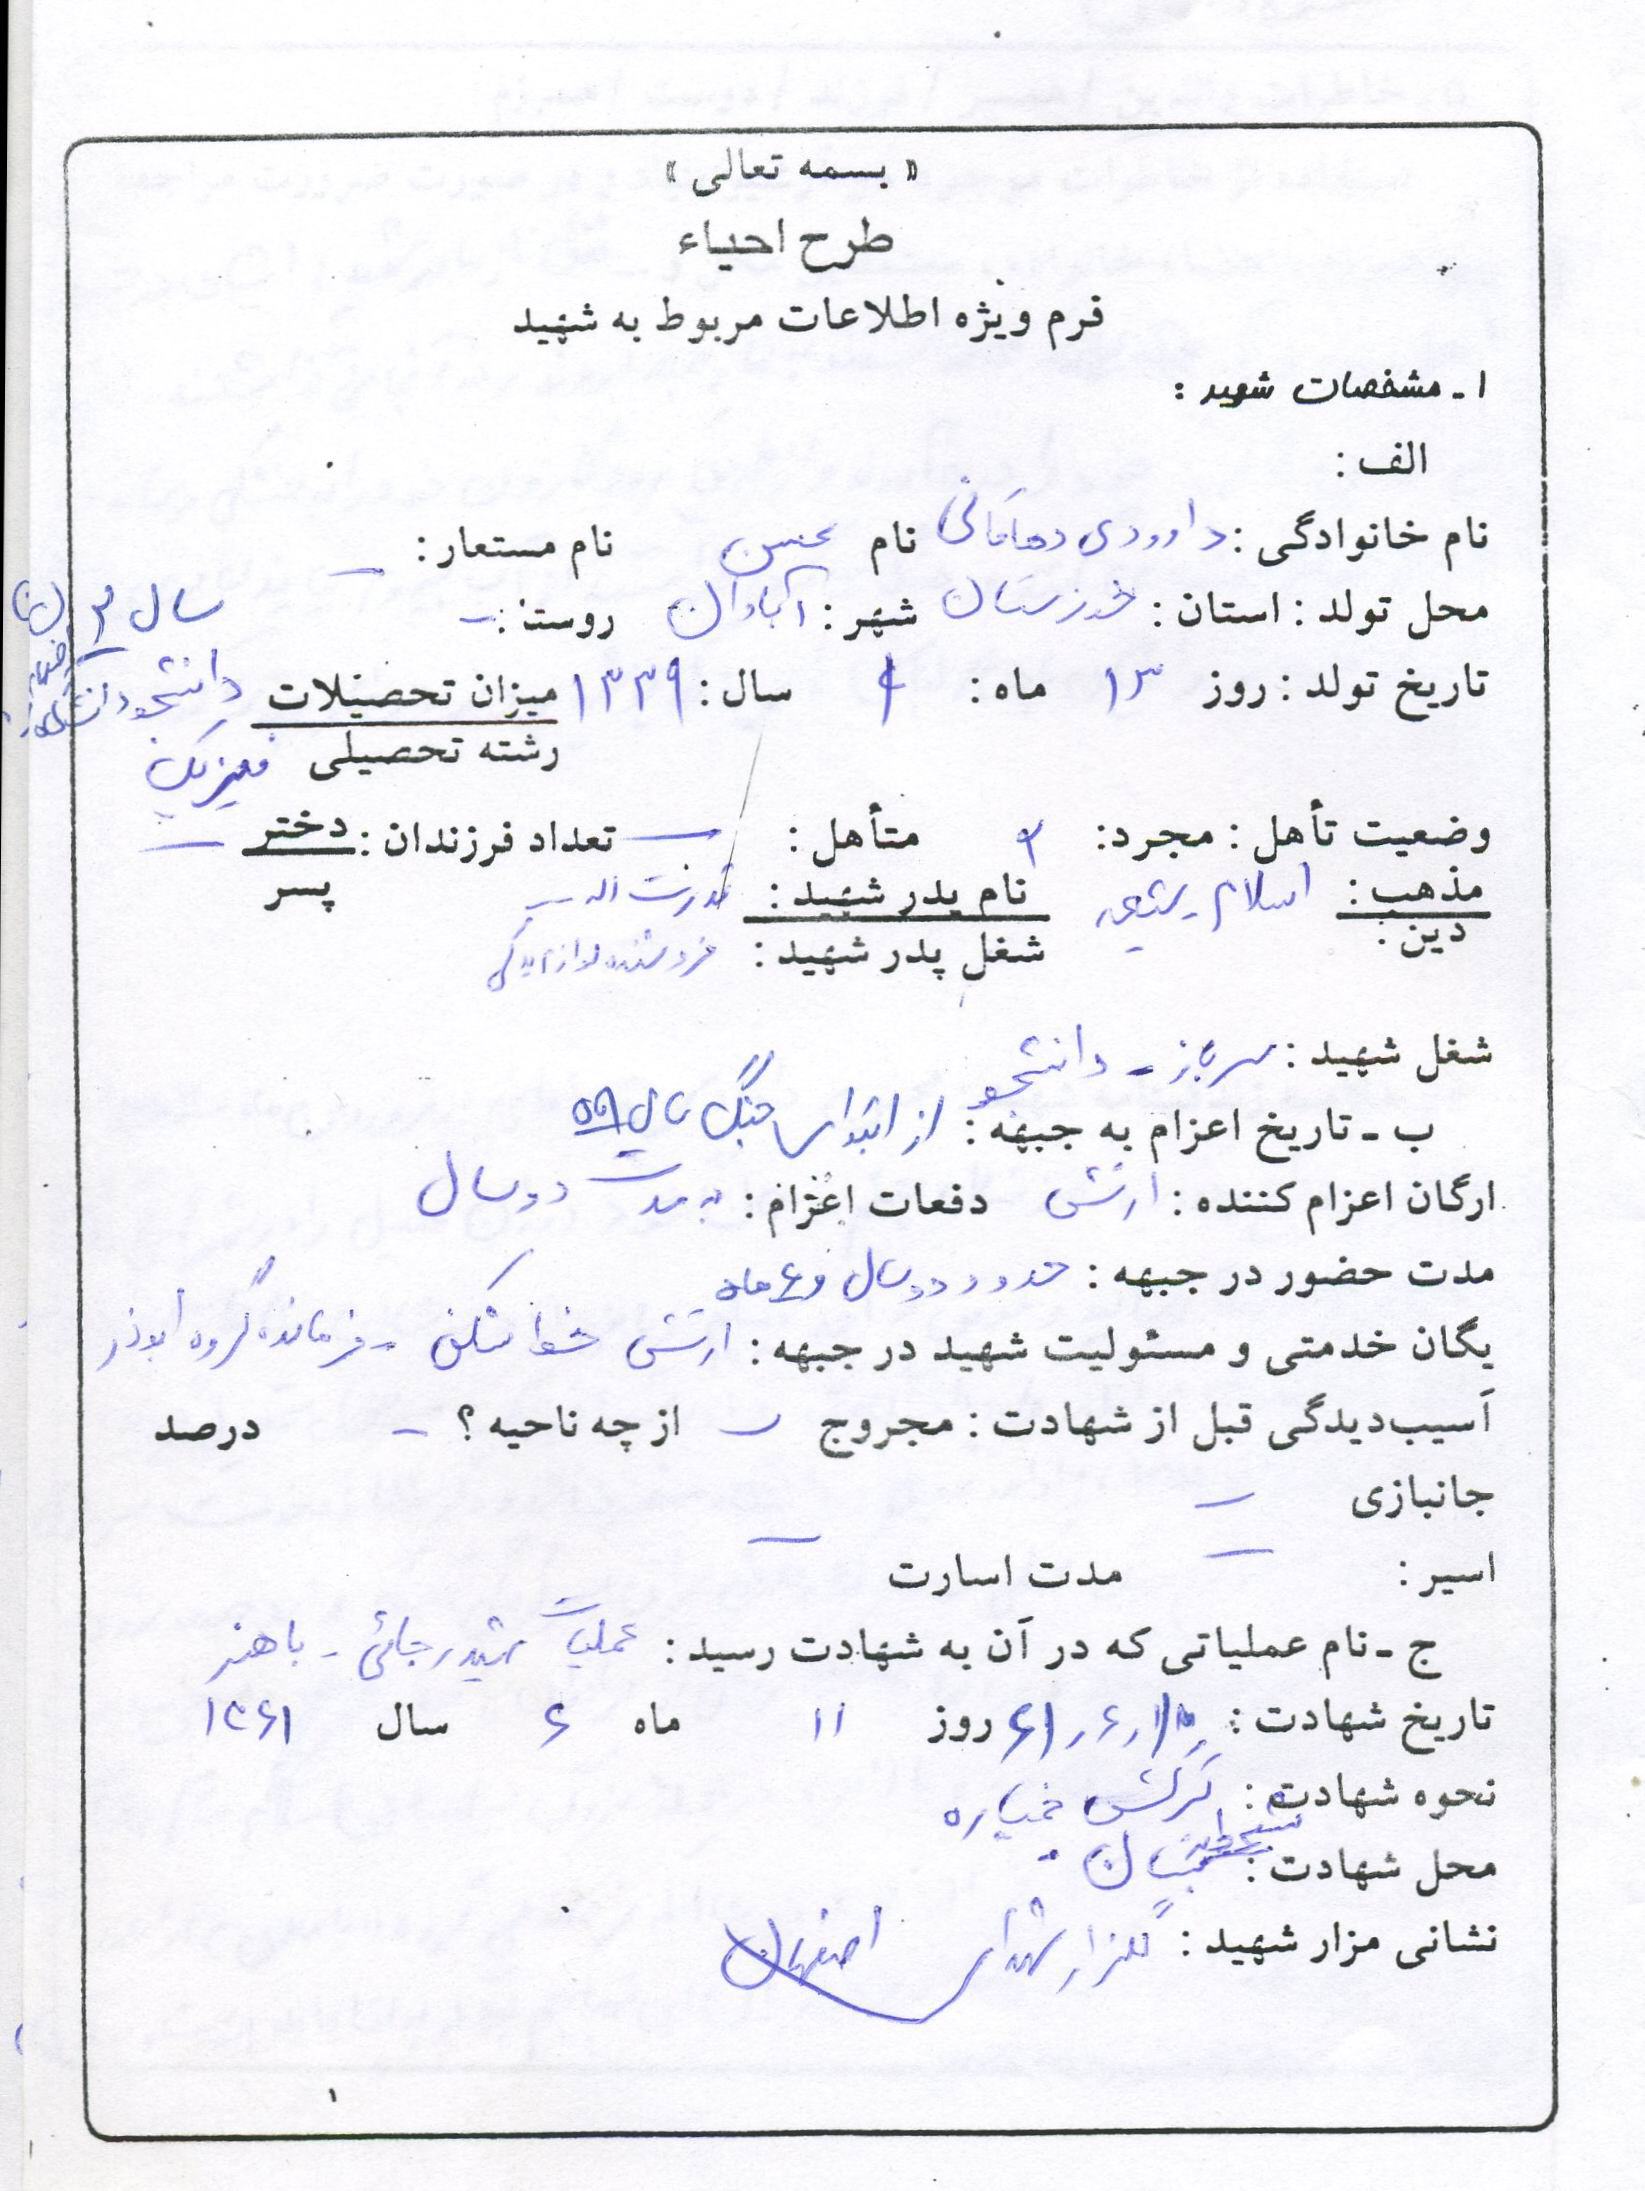 « بسمه تعالی »
طرح احیاء
فرم ویژه اطلاعات مربوط به شهید
۱ـ مشخصات شهید :
الف :
نام خانوادگی : داوودی دهاقانی نام محسن نام مستعار : –
محل تولد : استان : خوزستان شهر : آبادان روستا : – سال ۳
تاریخ تولد : روز ۱۳ ماه : ۶ سال : ۱۳۳۹ میزان تحصیلات دانشجو دانشگاه
رشته تحصیلی فیزیک
وضعیت تأهل : مجرد : متأهل : — تعداد فرزندان : دختر —
پسر
مذهب : اسلام شیعه نام پدر شهید : قدرت اله
دین : شغل پدر شهید : فروشنده لوازم یدکی
شغل شهید : سرباز - دانشجو
ب ـ تاریخ اعزام به جبهه : از ابتدای جنگ سال ۵۹
ارگان اعزام کننده : ارتش دفعات اعزام : به مدت دو سال
مدت حضور در جبهه : حدود دو سال و ۶ ماه
یگان خدمتی و مسئولیت شهید در جبهه : ارتش خط شکن - فرمانده گروه ابوذر
آسیب‌دیدگی قبل از شهادت : مجروج – از چه ناحیه ؟ – درصد
جانبازی –
اسیر : – مدت اسارت –
ج ـ نام عملیاتی که در آن به شهادت رسید : عملیات شهید رجائی - باهنر
تاریخ شهادت : ۶۱٫۶٫۱۱ روز ۱۱ ماه ۶ سال ۱۳۶۱
نحوه شهادت : ترکش خمپاره
محل شهادت :
نشانی مزار شهید : گلزار شهدای اصفهان
۱